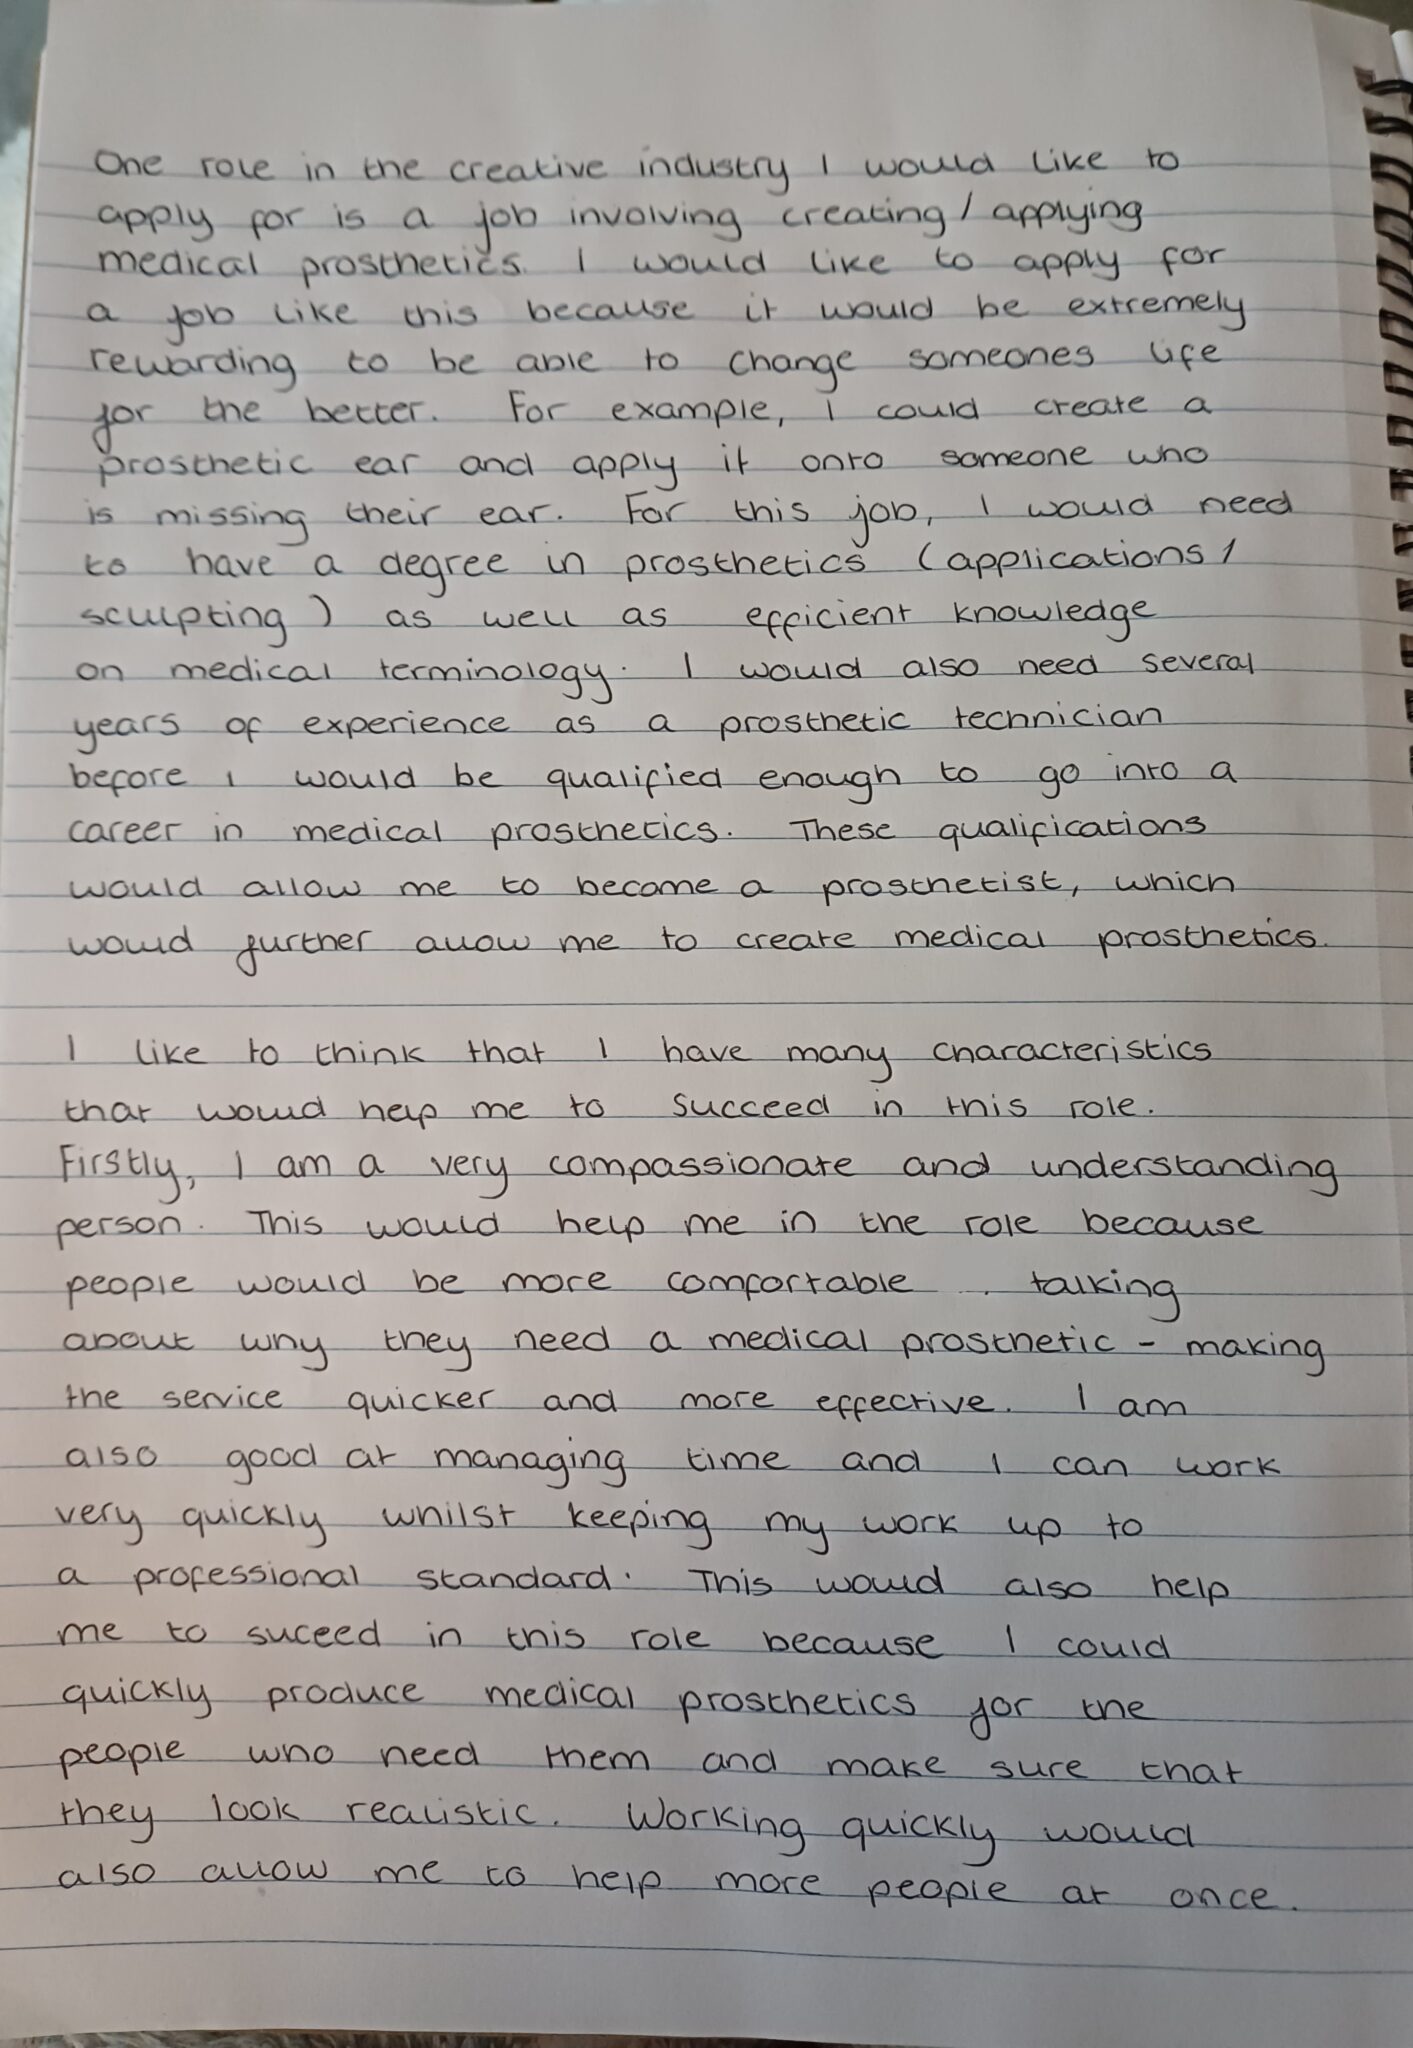 One role in the creative industry I would like to
apply for is a job involving creating / applying
medical prosthetics. I would like to apply for
a job like this because it would be extremely
rewarding to be able to change someones life
for the better. For example, I could create a
prosthetic ear and apply it onto someone who
is missing their ear. For this job, I would need
to have a degree in prosthetics (applications /
sculpting) as well as efficient knowledge
on medical terminology. I would also need several
years of experience as a prosthetic technician
before I would be qualified enough to go into a
career in medical prosthetics. These qualifications
would allow me to become a prosthetist, which
would further allow me to create medical prosthetics.
I like to think that I have many characteristics
that would help me to succeed in this role.
Firstly, I am a very compassionate and understanding
person. This would help me in the role because
people would be more comfortable talking
about why they need a medical prosthetic - making
the service quicker and more effective. I am
also good at managing time and I can work
very quickly whilst keeping my work up to
a professional standard. This would also help
me to suceed in this role because I could
quickly produce medical prosthetics for the
people who need them and make sure that
they look realistic. Working quickly would
also allow me to help more people at once.